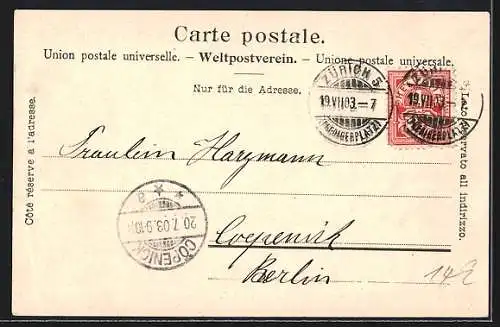 Carte postale.
Union postale universelle. – Weltpostverein. – Unione postale universale.
Nur für die Adresse.
Côté réservé à l'adresse.
Lato riservato all indirizzo.
ZÜRICH 5
19.VII.03.–7
(INDUSTRIEPLATZ)
19.VII.03
Fraulein Harzmann
Coepenick
Berlin
CÖPENICK
20.7.03.9-10V.
14 E